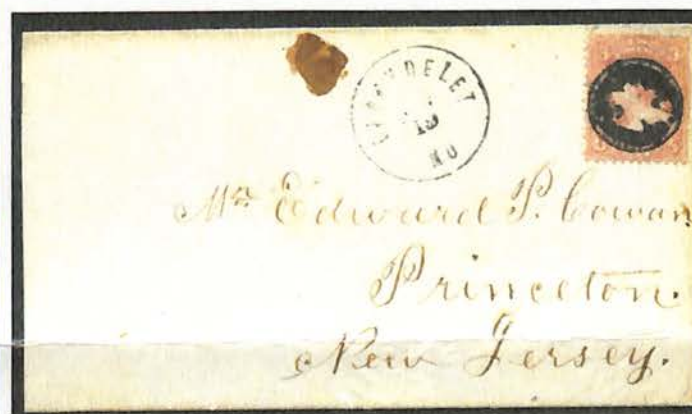 CARONDELET
19
MO
Mr. Edward P. Cowan.
Princeton.
New Jersey.